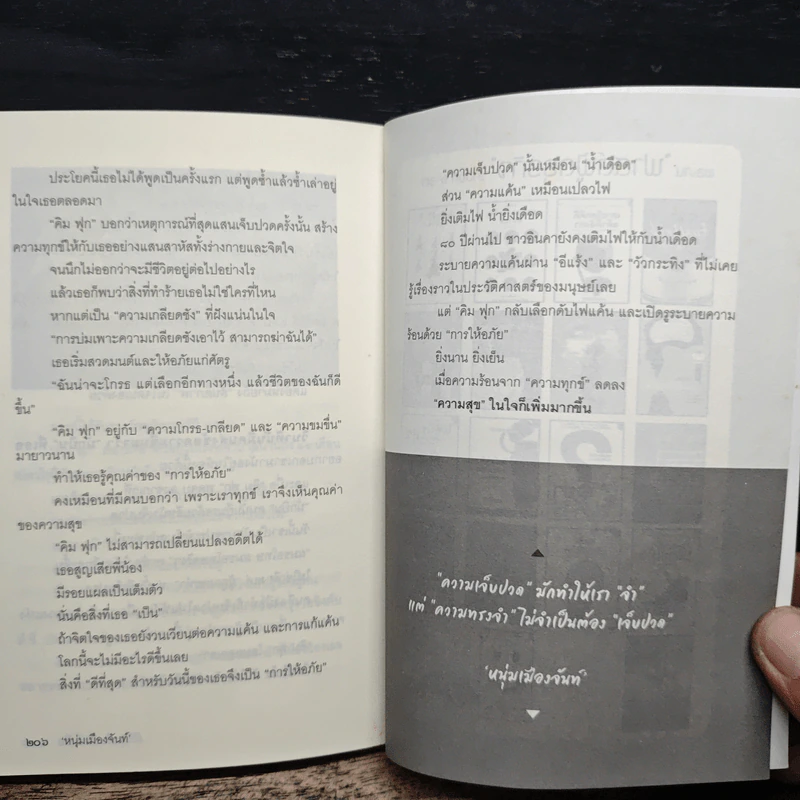 ประโยคนี้เธอไม่ได้พูดเป็นครั้งแรก แต่พูดซ้ำแล้วซ้ำเล่าอยู่
ในใจเธอตลอดมา
"คิม ฟุก" บอกว่าเหตุการณ์ที่สุดแสนเจ็บปวดครั้งนั้น สร้าง
ความทุกข์ให้กับเธออย่างแสนสาหัสทั้งร่างกายและจิตใจ
จนนึกไม่ออกว่าจะมีชีวิตอยู่ต่อไปอย่างไร
แล้วเธอก็พบว่าสิ่งที่ทำร้ายเธอไม่ใช่ใครที่ไหน
หากแต่เป็น "ความเกลียดชัง" ที่ฝังแน่นในใจ
"การบ่มเพาะความเกลียดชังเอาไว้ สามารถฆ่าฉันได้"
เธอเริ่มสวดมนต์และให้อภัยแก่ศัตรู
"ฉันน่าจะโกรธ แต่เลือกอีกทางหนึ่ง แล้วชีวิตของฉันก็ดี
ขึ้น"
"คิม ฟุก" อยู่กับ "ความโกรธ-เกลียด" และ "ความขมขื่น"
มายาวนาน
ทำให้เธอรู้คุณค่าของ "การให้อภัย"
คงเหมือนที่มีคนบอกว่า เพราะเราทุกข์ เราจึงเห็นคุณค่า
ของความสุข
"คิม ฟุก" ไม่สามารถเปลี่ยนแปลงอดีตได้
เธอสูญเสียพี่น้อง
มีรอยแผลเป็นเต็มตัว
นั่นคือสิ่งที่เธอ "เป็น"
ถ้าจิตใจของเธอยังวนเวียนต่อความแค้น และการแก้แค้น
โลกนี้จะไม่มีอะไรดีขึ้นเลย
สิ่งที่ "ดีที่สุด" สำหรับวันนี้ของเธอจึงเป็น "การให้อภัย"
๒๐๖ 'หนุ่มเมืองจันท์'
"ความเจ็บปวด" นั้นเหมือน "น้ำเดือด"
ส่วน "ความแค้น" เหมือนเปลวไฟ
ยิ่งเติมไฟ น้ำยิ่งเดือด
๘๐ ปีผ่านไป ชาวอินคายังคงเติมไฟให้กับน้ำเดือด
ระบายความแค้นผ่าน "อีแร้ง" และ "วัวกระทิง" ที่ไม่เคย
รู้เรื่องราวในประวัติศาสตร์ของมนุษย์เลย
แต่ "คิม ฟุก" กลับเลือกดับไฟแค้น และเปิดรูระบายความ
ร้อนด้วย "การให้อภัย"
ยิ่งนาน ยิ่งเย็น
เมื่อความร้อนจาก "ความทุกข์" ลดลง
"ความสุข" ในใจก็เพิ่มมากขึ้น
"ความเจ็บปวด" มักทำให้เรา "จำ"
แต่ "ความทรงจำ" ไม่จำเป็นต้อง "เจ็บปวด"
'หนุ่มเมืองจันท์'